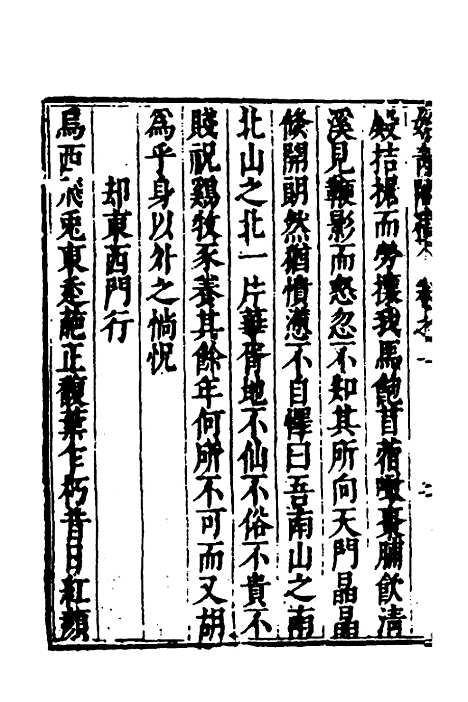 拮据而勞攘我馬飽苜蓿棗脯飲清
溪見鞭影而怒忽不知其所向天門晶晶
倏開朗然猶憤懣不自懌曰吾南山之南
北山之北一片華胥地不仙不俗不貴不
賤祝鷄牧豕養其餘年何所不可而又胡
為乎身以外之惝怳
却東西門行
烏西飛兎東走葩正馥葉乍朽昔日紅顏